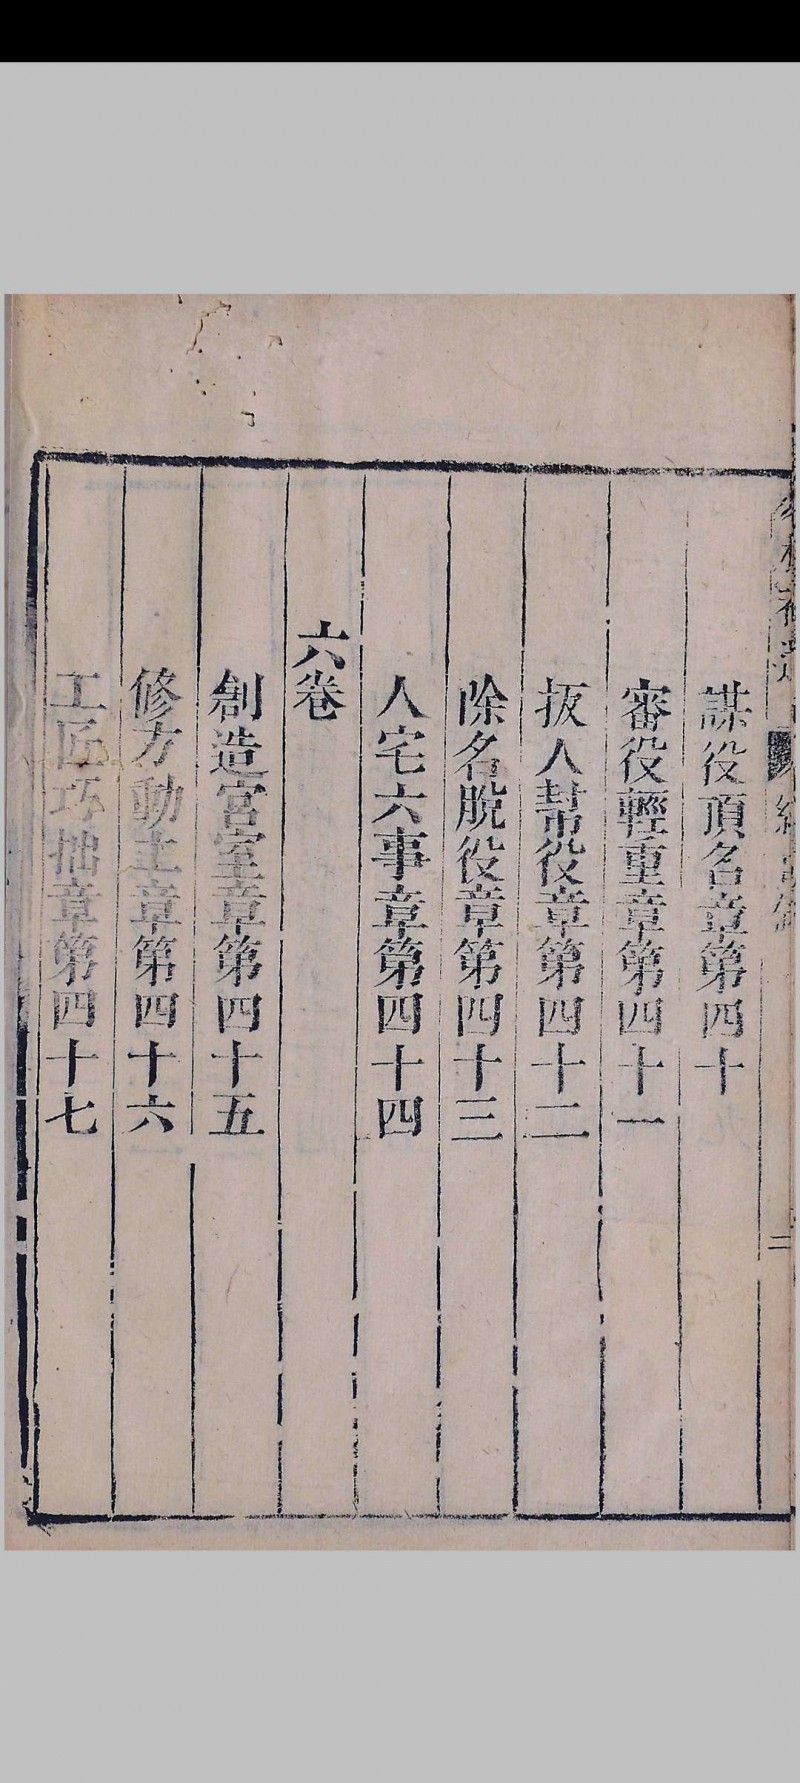 謀役頂名章第四十
審役輕重章第四十一
扳人幇役章第四十二
除名脫役章第四十三
人宅六事章第四十四
六卷
創造宮室章第四十五
修方動土章第四十六
工匠巧拙章第四十七
二